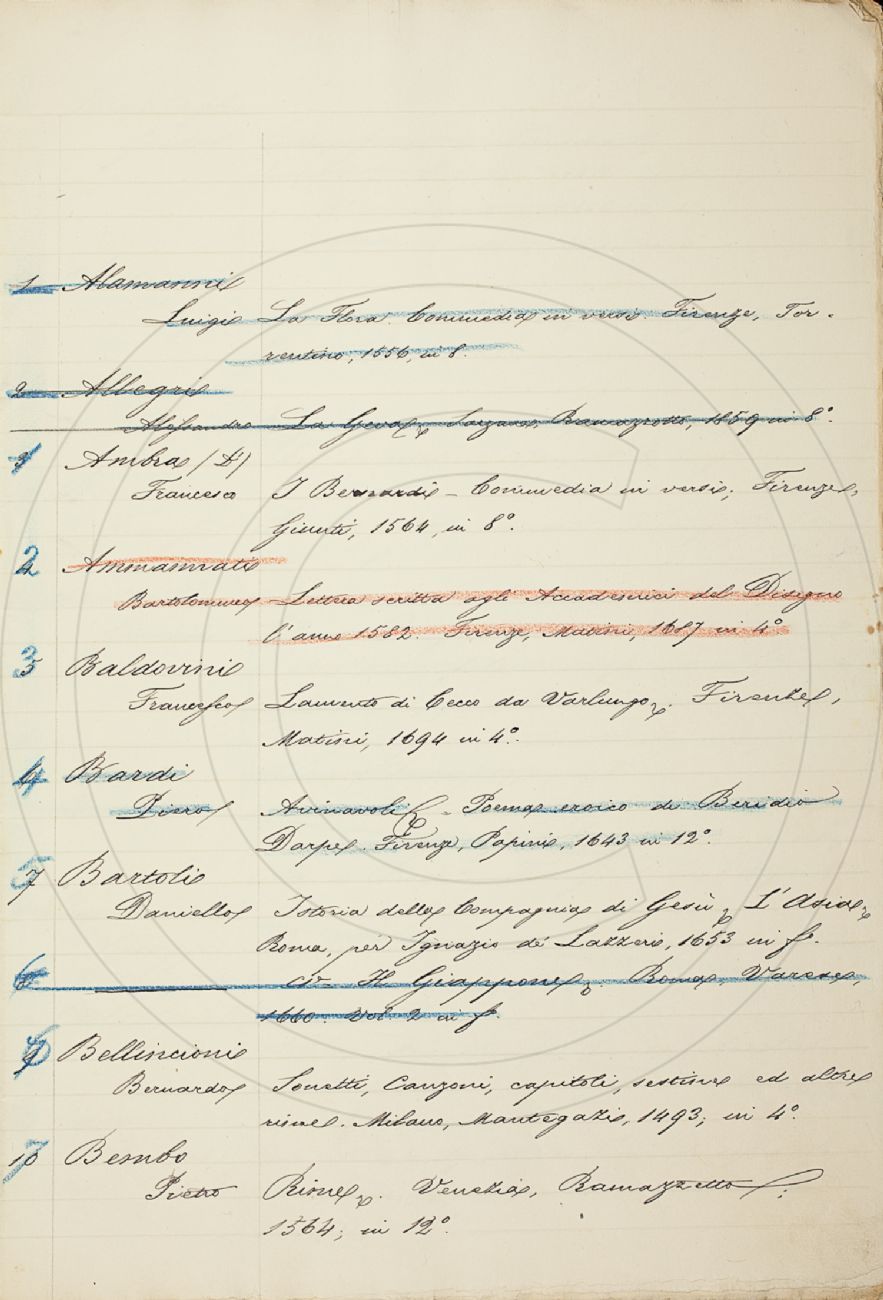 1 Alamanni
Luigi La Flora Commedia in versi. Firenze, Tor-
rentino, 1556, in 8.
2 Allegri
Alessandro La Geva, Bramazzotto, 1859 in 8°.
3 Ambra (D')
Francesco I Bernardi - Commedia in versi; Firenze,
Giunti, 1564, in 8°.
2 Ammannati
Bartolomeo Lettera scritta agli Accademici del Disegno
l'anno 1582. Firenze, Matini, 1687 in 4°
3 Baldovini
Francesco Lamento di Cecco da Varlungo. Firenze,
Matini, 1694 in 4°.
4 Bardi
Piero Avinavoli - Poema eroico di Beridio
Darpe. Firenze, Papini, 1643 in 12°.
5 7 Bartoli
Daniello Istoria della Compagnia di Gesù, L'Asia,
Roma, per Ignazio de' Lazzeri, 1653 in f°.
6 Il Giappone. Roma, Varese,
1660. Vol. 2 in f°.
Bellincioni
Bernardo Sonetti, Canzoni, capitoli, sestine ed altre
rime. Milano, Mantegazi, 1493; in 4°.
7 10 Bembo
Pietro Rime. Venezia, Ramazzetto;
1564; in 12°.